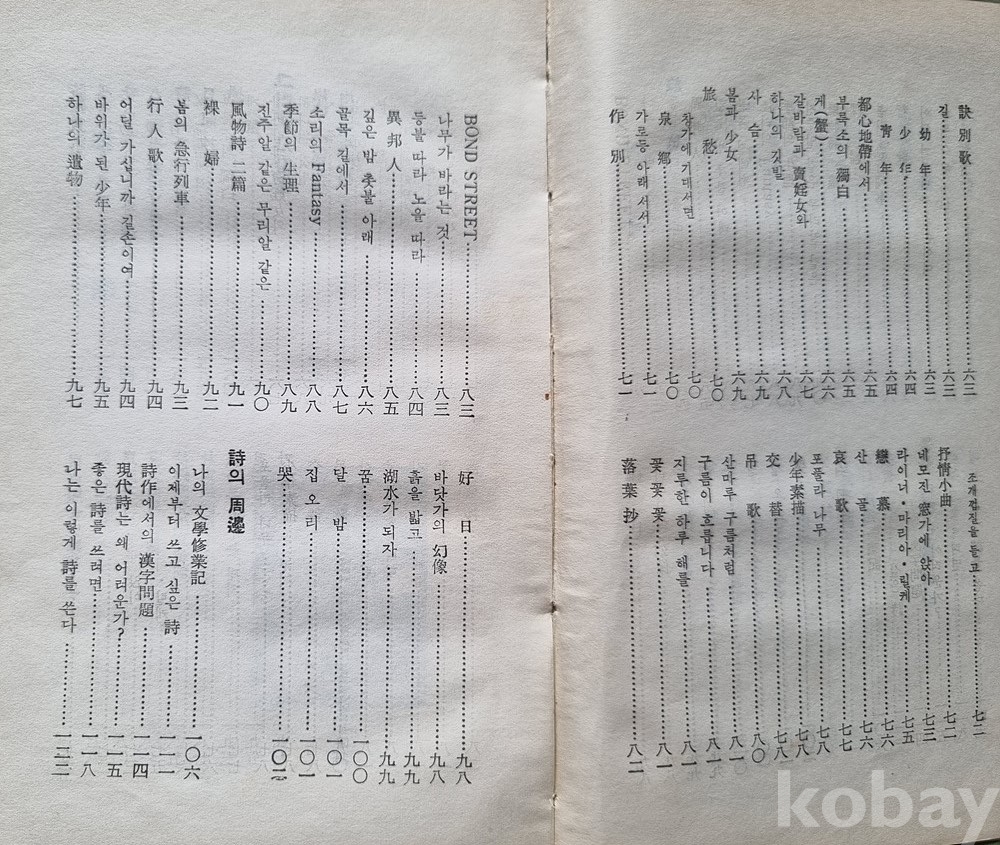 訣別歌……六三
길……六三
幼年……六三
少年……六四
靑年……六四
都心地帶에서……六五
부룩소의 獨白……六五
게(蟹)……六六
갈바람과 賣姪女와……六七
하나의 깃발……六八
사슴……六九
봄과 少女……六九
旅愁……七〇
창가에 기대서면……七〇
泉鄕……七〇
가로등 아래 서서……七一
作別……七一
조개껍질을 들고……七二
抒情小曲……七二
네모진 窓가에 앉아……七三
라이너・마리아・릴케……七五
戀慕……七六
산골……七六
哀歌……七七
포플라 나무……七八
少年素描……七八
交替……七八
吊歌……八〇
산마루 구름처럼……八一
구름이 흐릅니다……八一
지루한 하루 해를……八一
꽃꽃꽃……八一
落葉抄……八二
BOND STREET……八三
나무가 바라는 것……八三
등불 따라 노을 따라……八四
異邦人……八五
깊은 밤 촛불 아래……八六
골목 길에서……八七
소리의 Fantasy……八八
季節의 生理……八九
진주알 같은 무리알 같은……九〇
風物詩 二篇……九一
裸婦……九二
봄의 急行列車……九三
行人歌……九四
어딜 가십니까 길손이여……九四
바위가 된 少年……九五
하나의 遺物……九七
好日……九八
바닷가의 幻像……九八
흙을 밟고……九九
湖水가 되자……九九
꿈……一〇〇
달밤……一〇一
집오리……一〇一
哭……一〇二
詩의 周邊
나의 文學修業記……一〇六
이제부터 쓰고 싶은 詩……一一一
詩作에서의 漢字問題……一一四
現代詩는 왜 어려운가?……一一五
좋은 詩를 쓰려면……一一八
나는 이렇게 詩를 쓴다……一二二
kobay